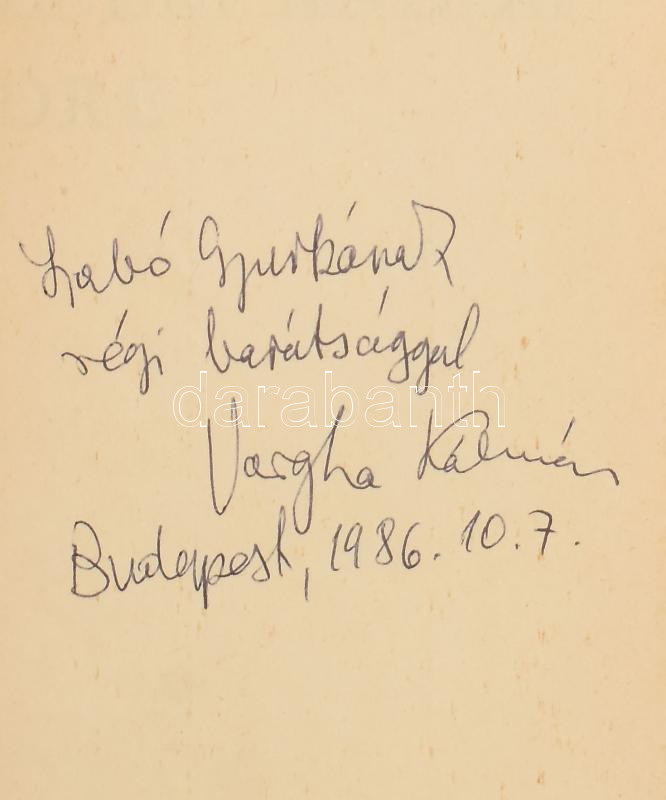 Szabó Gyurkának
régi barátsággal
darabanth
Vargha Kálmán
Budapest, 1986. 10. 7.